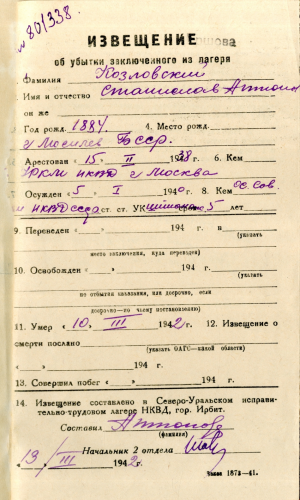 № 801338.
ИЗВЕЩЕНИЕ
об убытии заключенного из лагеря
Фамилия Козловский
Имя и отчество Станислав Антоно
он же
Год рожд. 1884 4. Место рожд.
г Могилев БССР.
Арестован «15» II 1938 6. Кем
УРКМ НКВД г Москва
Осужден «5» I 1940 г. 8. Кем Ос. Сов.
и НКВД ссср ст. ст. УК 5 лет
9. Переведен « » 194 г. в
(указать
место заключения, куда переведен)
10. Освобожден « » 194 г.
(указать
по отбытии наказания, или досрочно, если
досрочно—по чьему постановлению)
11. Умер «10» III 1942 г. 12. Извещение о
смерти послано
(указать ОАГС—какой области)
13. Совершил побег « » 194 г.
14. Извещение составлено в Северо-Уральском исправи-
тельно-трудовом лагере НКВД, гор. Ирбит.
Составил Антонова
(фамилия)
Начальник 2 отдела
«19» III 1942 г.
Заказ 1873—41.